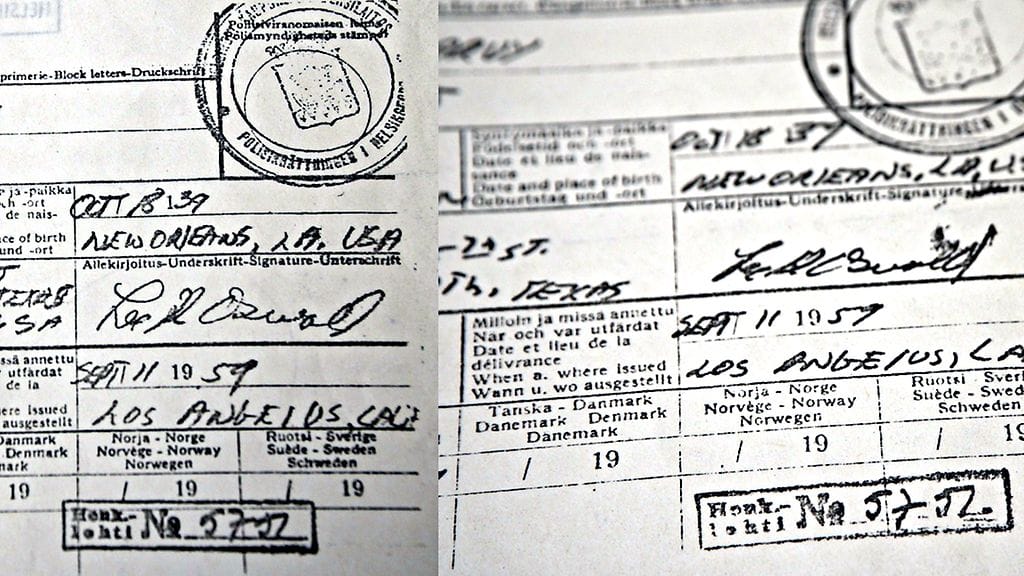 HELSI
Poliisiviranomaisen leima
Polismyndighetens stämpel
primerie-Block letters-Druckschrift
POLISINRÄTTNINGEN I HELSINGFORS
ja-paikka
och -ort
de nais-
OCT 18 139
ce of birth
und -ort
NEW ORLEANS, LA. USA
Allekirjoitus-Underskrift-Signature-Unterschrift
TEXAS
USA
Lee H Oswald
issä annettu
utfärdat
de la
SEPT 11 19 59
here issued
ausgestellt
LOS ANGELUS, CALI
Danmark
Denmark
mark
Norja - Norge
Norvège - Norway
Norwegen
Ruotsi - Sverige
Suède - Sweden
Schweden
19
/ 19
/ 19
Henk.-
lehti
No 5752
POLISINRÄTTNINGEN I
Syntymäaika ja -paikka
Födelsetid och -ort
Date et lieu de nais-
sance
Date and place of birth
Geburtstag und -ort
OCT 18 39
NEW ORLEANS, LA, US
Allekirjoitus-Underskrift-Signature
ST.
TEXAS
Lee H Oswald
Milloin ja missä annettu
När och var utfärdat
Date et lieu de la
délivrance
When a. where issued
Wann u. wo ausgestellt
SEPT 11 1959
LOS ANGELUS, CA
Tanska - Danmark
Danemark Denmark
Dänemark
Norja - Norge
Norvège - Norway
Norwegen
Ruotsi - Sveri
Suède - Swed
Schweden
/ 19
/ 19
/ 19
Henk.-
lehti
No 5752.